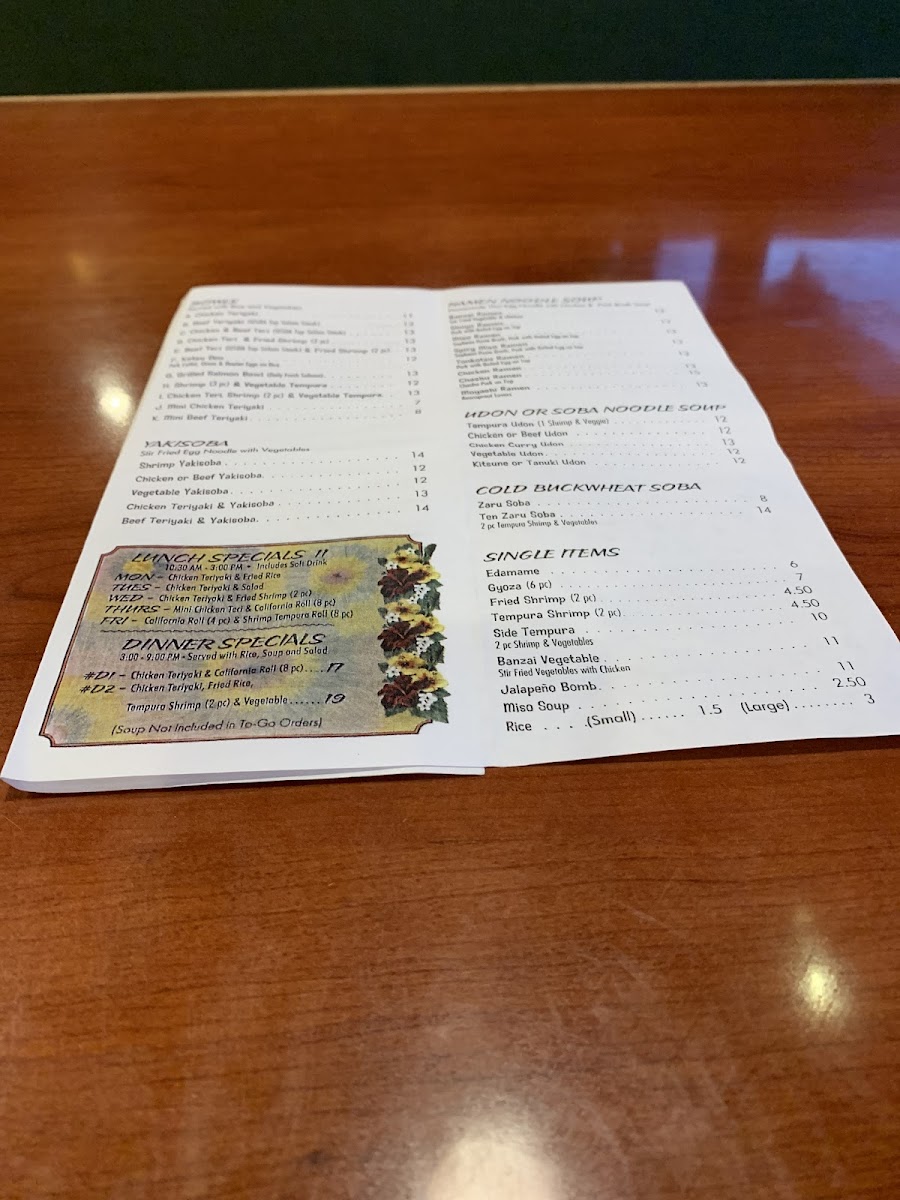 BOWLS
Served with Rice and Vegetables
A. Chicken Teriyaki 11
B. Beef Teriyaki (USDA Top Sirloin Steak) 12
C. Chicken & Beef Teri (USDA Top Sirloin Steak) 13
D. Chicken Teri & Fried Shrimp (2 pc) 13
E. Beef Teri (USDA Top Sirloin Steak) & Fried Shrimp (2 pc) 13
F. Katsu Don 12
G. Grilled Salmon Bowl 13
H. Shrimp (3 pc) & Vegetable Tempura 12
I. Chicken Teri, Shrimp (2 pc) & Vegetable Tempura 13
J. Mini Chicken Teriyaki 7
K. Mini Beef Teriyaki 8
YAKISOBA
Stir Fried Egg Noodle with Vegetables
Shrimp Yakisoba 14
Chicken or Beef Yakisoba 12
Vegetable Yakisoba 12
Chicken Teriyaki & Yakisoba 13
Beef Teriyaki & Yakisoba 14
LUNCH SPECIALS !!
10:30 AM - 3:00 PM • Includes Soft Drink
MON – Chicken Teriyaki & Fried Rice
TUES – Chicken Teriyaki & Salad
WED – Chicken Teriyaki & Fried Shrimp (2 pc)
THURS – Mini Chicken Teri & California Roll (8 pc)
FRI – California Roll (4 pc) & Shrimp Tempura Roll (8 pc)
DINNER SPECIALS
3:00 - 9:00 PM - Served with Rice, Soup and Salad
#D1 – Chicken Teriyaki & California Roll (8 pc).... 17
#D2 – Chicken Teriyaki, Fried Rice,
Tempura Shrimp (2 pc) & Vegetable...... 19
(Soup Not Included in To-Go Orders)
RAMEN NOODLE SOUP
Tonkotsu Ramen
Chicken Ramen
Chashu Ramen
Moyashi Ramen 13
UDON OR SOBA NOODLE SOUP
Tempura Udon (1 Shrimp & Veggie) 12
Chicken or Beef Udon 12
Chicken Curry Udon 13
Vegetable Udon 12
Kitsune or Tanuki Udon 12
COLD BUCKWHEAT SOBA
Zaru Soba 8
Ten Zaru Soba 14
2 pc Tempura Shrimp & Vegetables
SINGLE ITEMS
Edamame 6
Gyoza (6 pc) 7
Fried Shrimp (2 pc) 4.50
Tempura Shrimp (2 pc) 4.50
Side Tempura 10
2 pc Shrimp & Vegetables
Banzai Vegetable 11
Stir Fried Vegetables with Chicken
Jalapeño Bomb 11
Miso Soup 2.50
Rice ....(Small) ...... 1.5 (Large) ........ 3